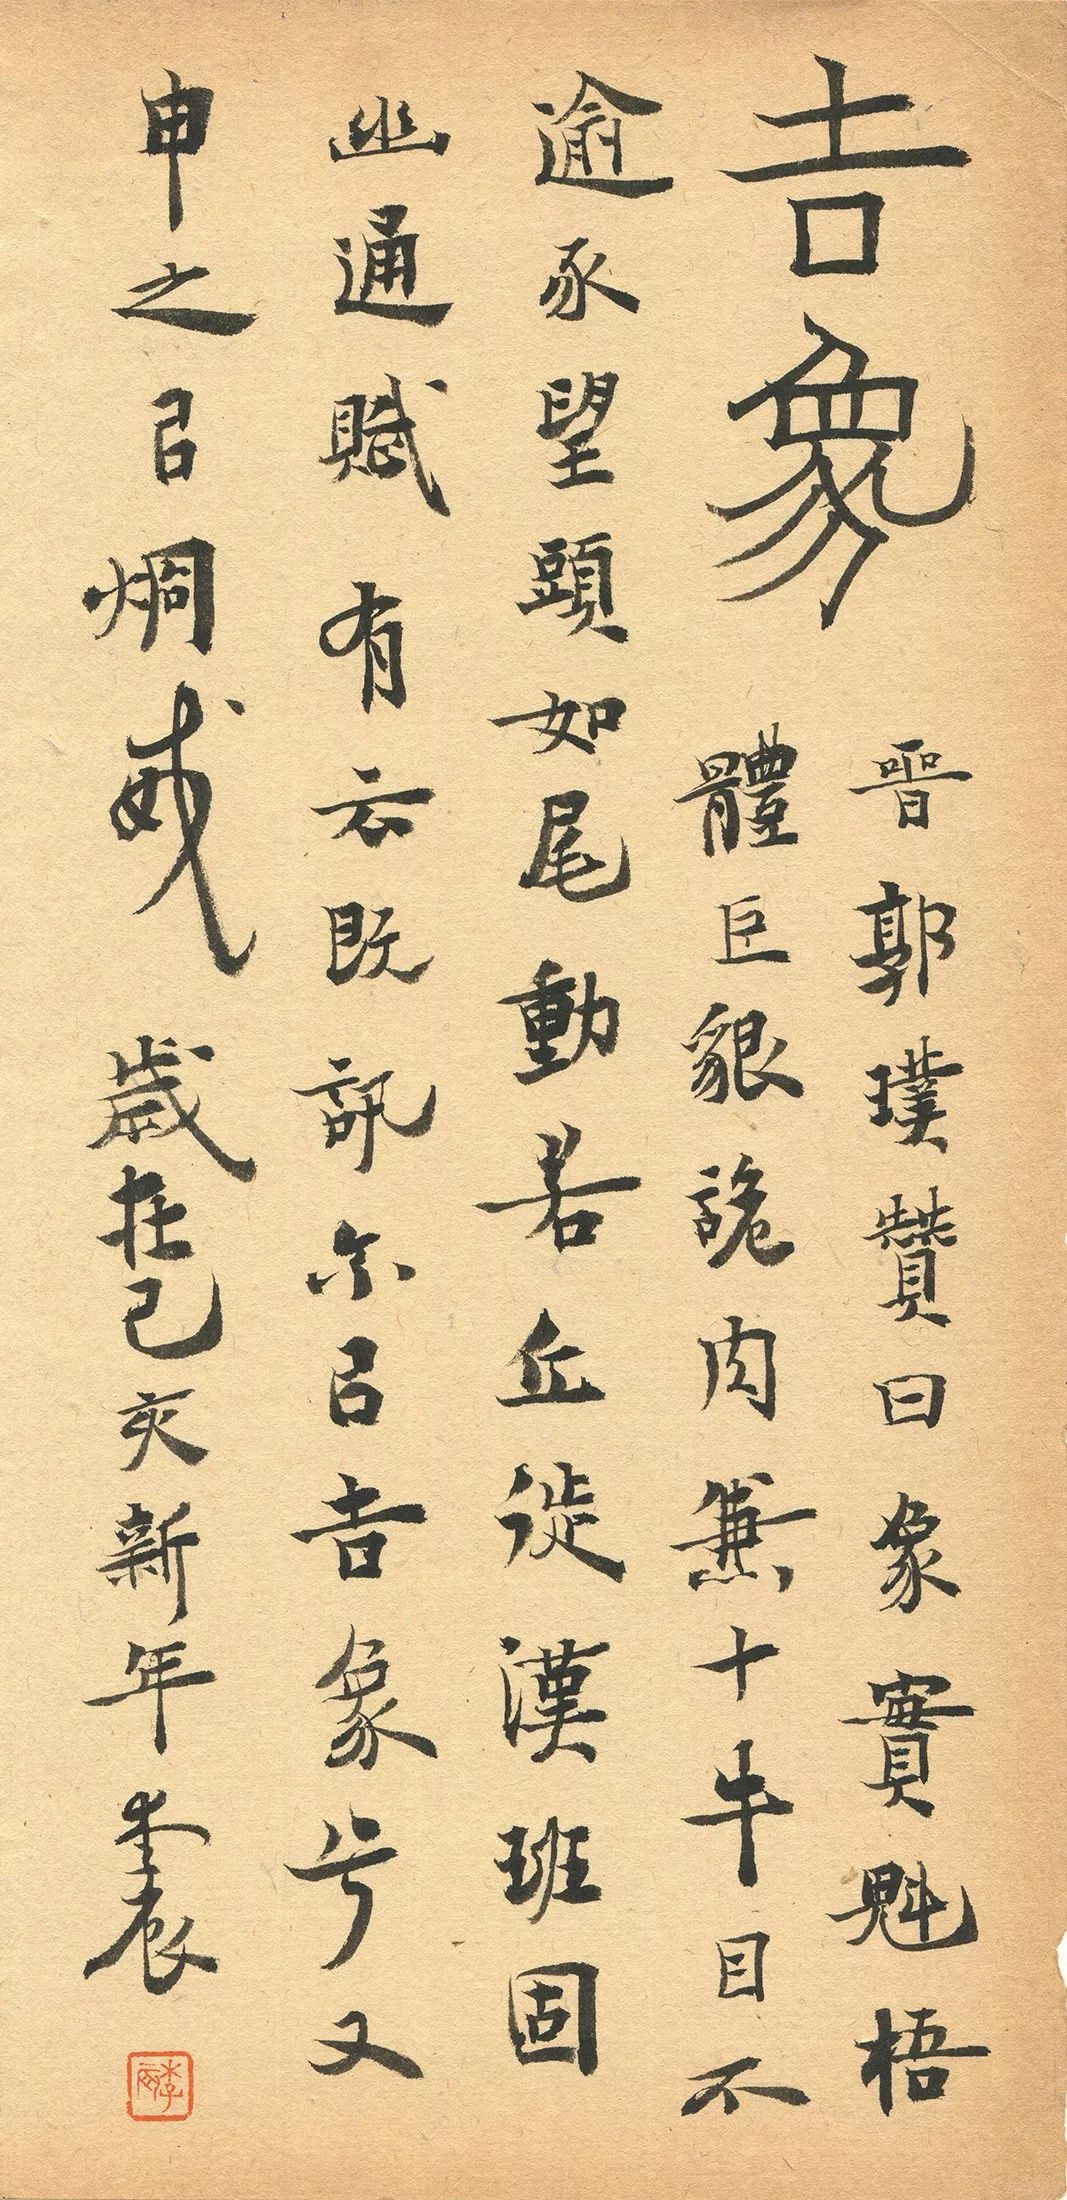 吉象
晉郭璞贊曰象實魁梧
體巨貌詭肉兼十牛目不
逾豕望頭如尾動若丘徙漢班固
幽通賦有云既訊尒㠯吉象兮又
申之㠯炯戒歲在己亥新年